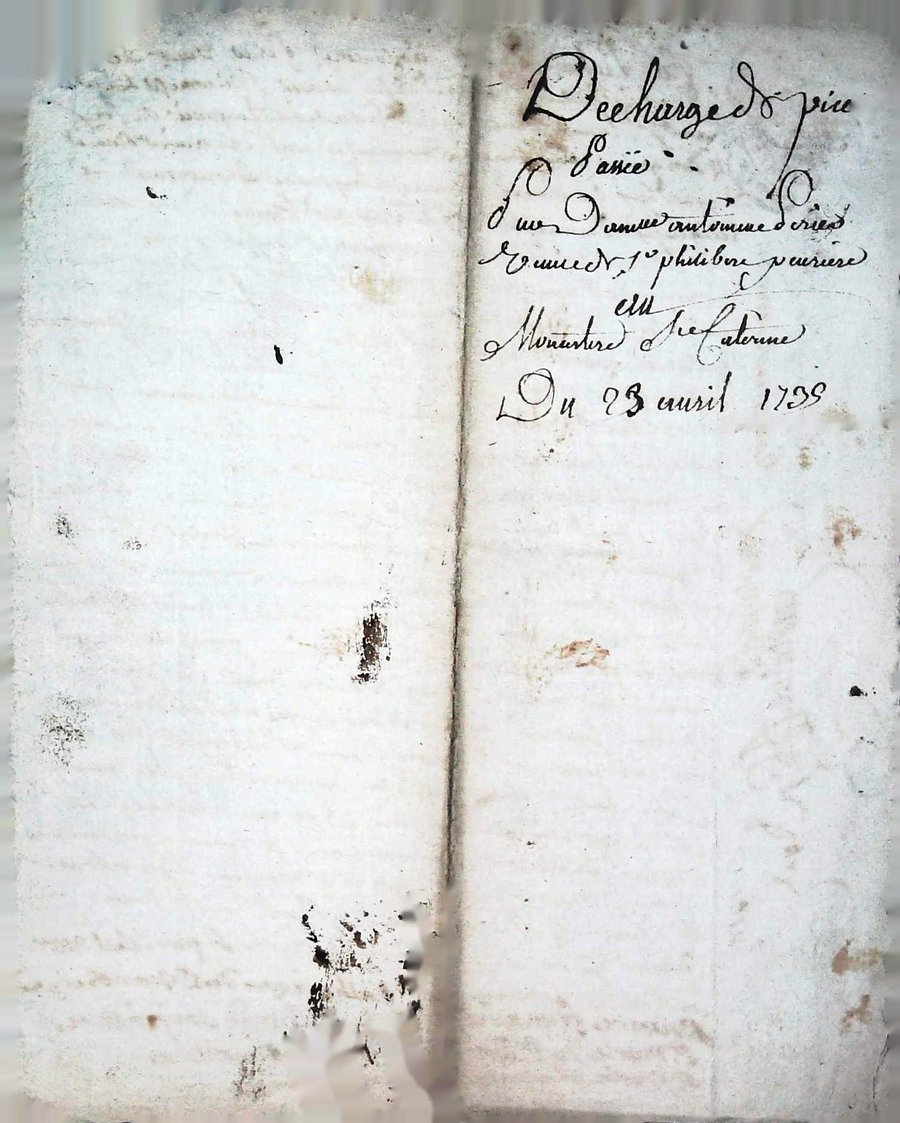 Decharge de piece
Passée
Par Damue antoinnue Perier
Veuuedr Sr philibere peurière
au
Monastere Ste Caterine
Du 23 auril 1735